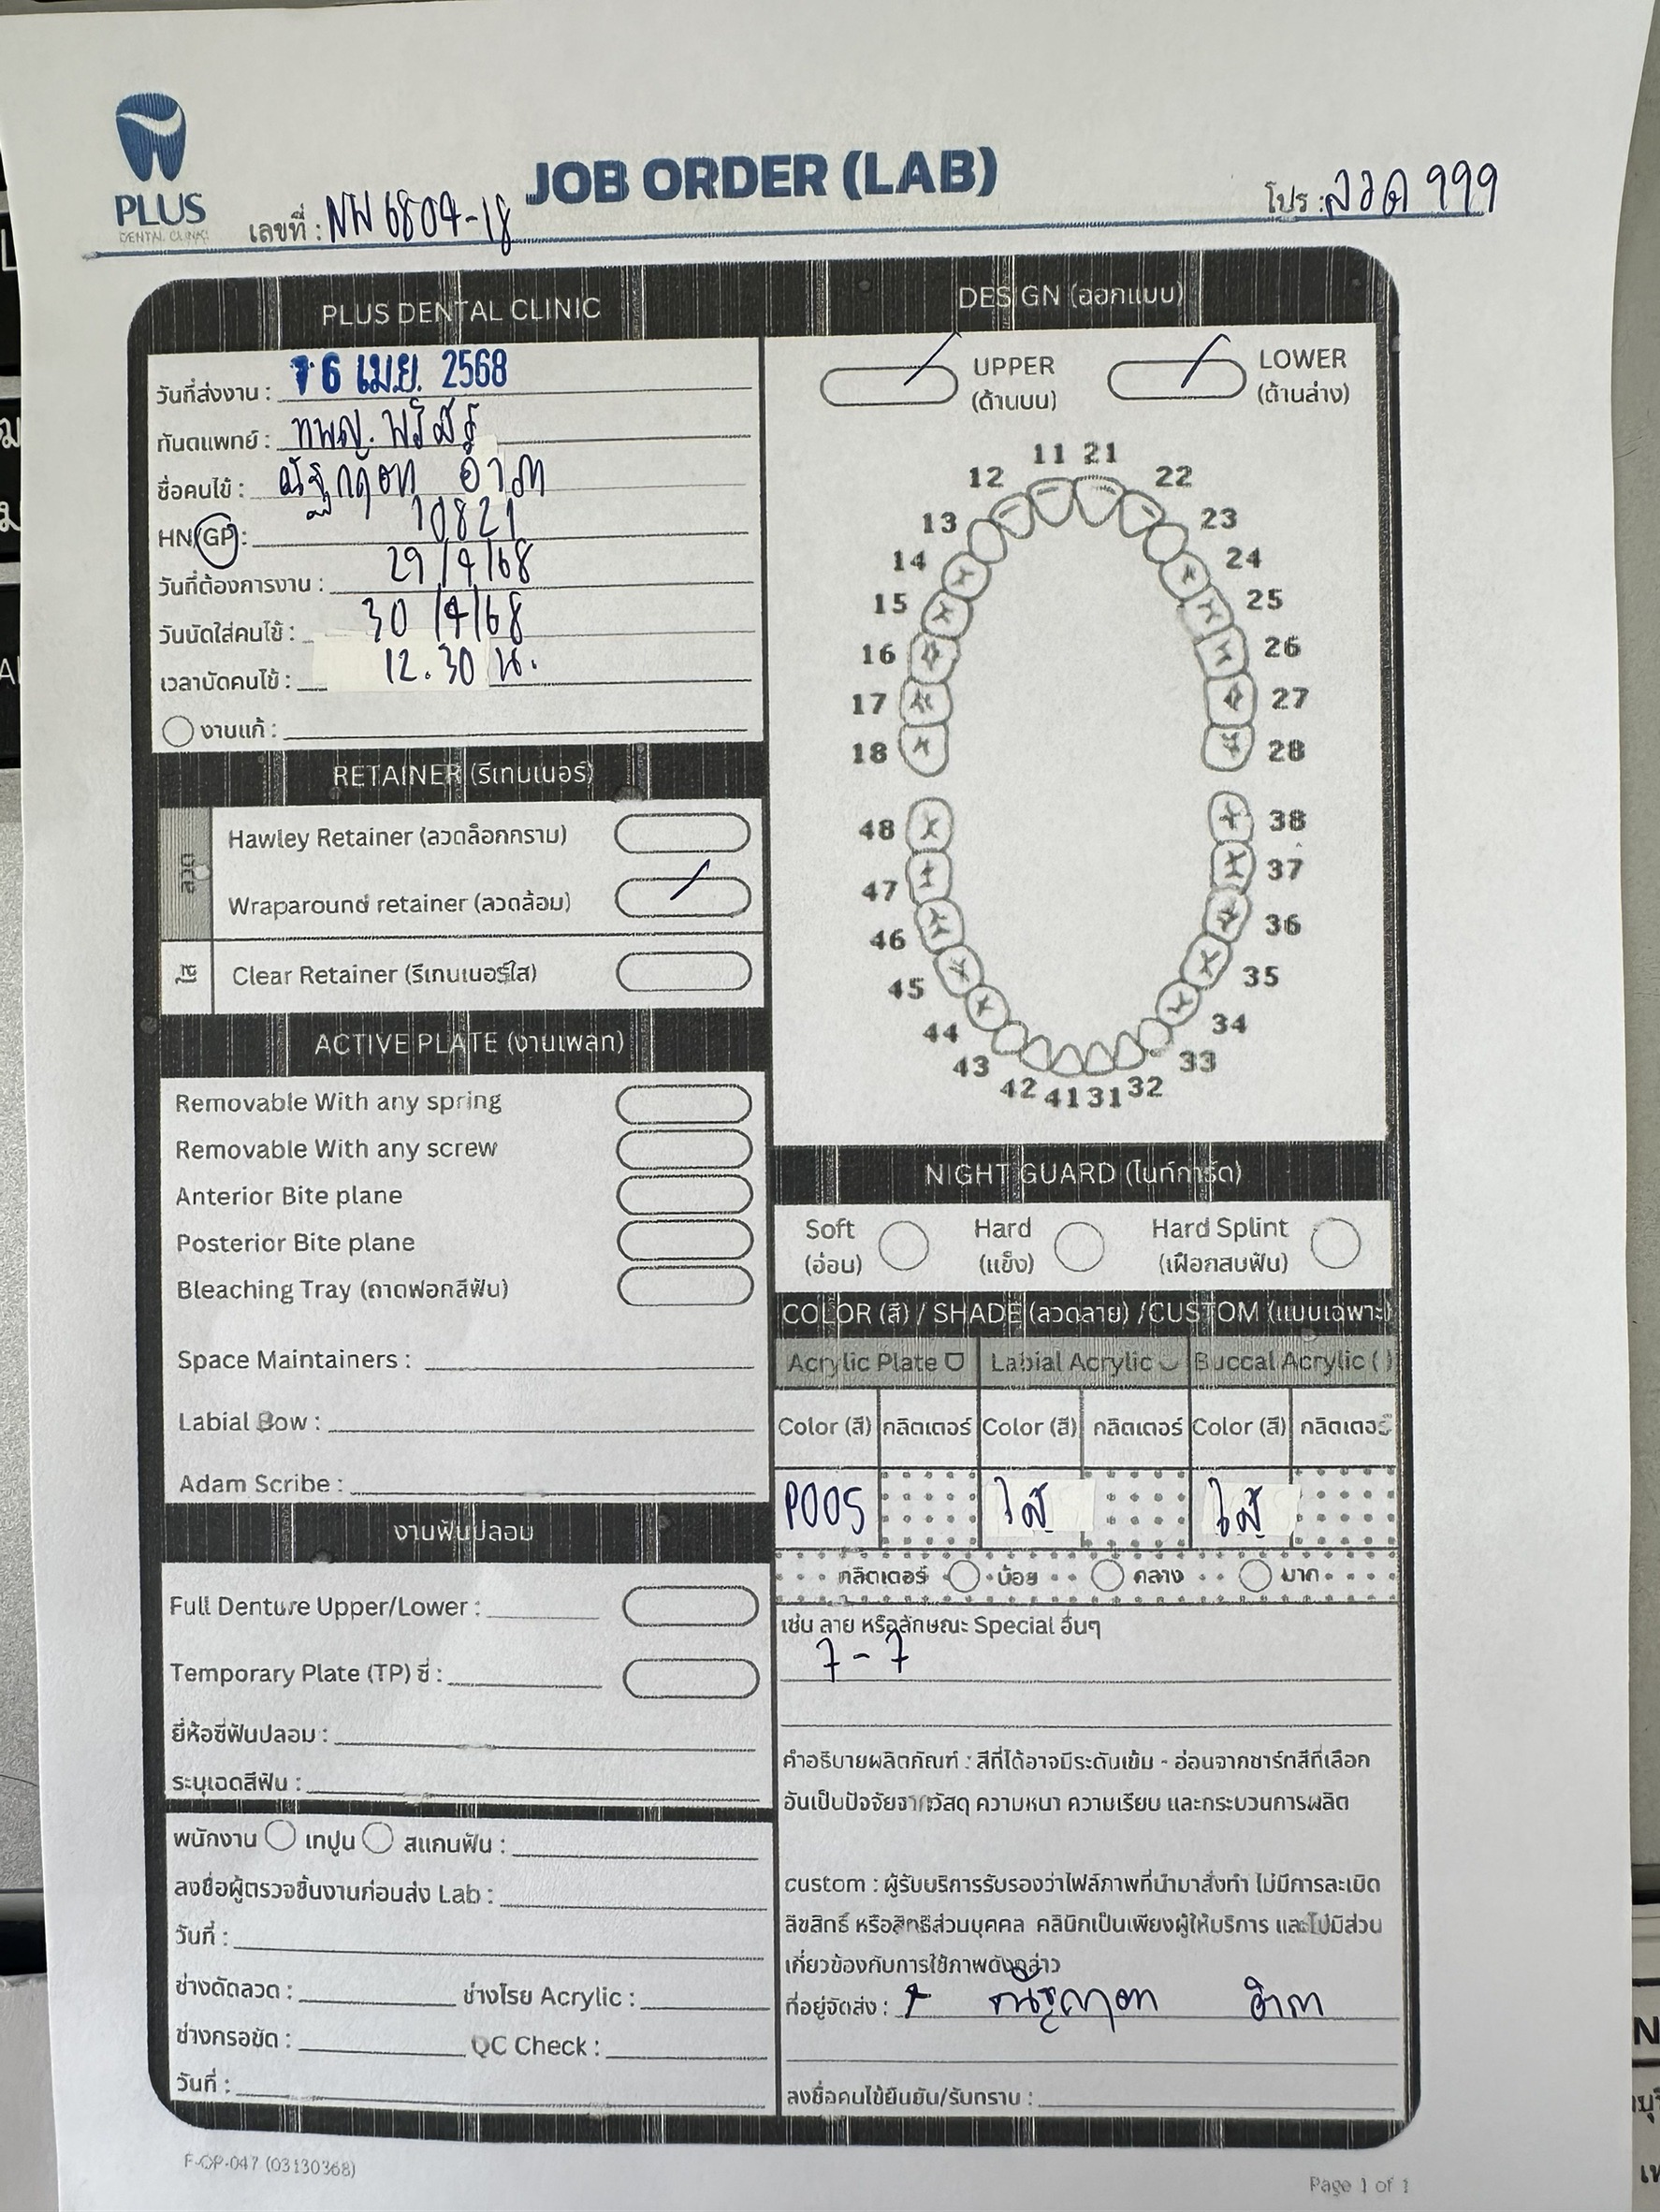 JOB ORDER (LAB)
PLUS
DENTAL CLINIC
เลขที่ : NW 6804-18
โปร : ลวด 999
PLUS DENTAL CLINIC
วันที่ส่งงาน : 16 เม.ย. 2568
ทันตแพทย์ : ทพญ.
ชื่อคนไข้ :
HN/GP : 10821
วันที่ต้องการงาน : 29/4/68
วันนัดใส่คนไข้ : 30/4/68
เวลานัดคนไข้ : 12.30 น.
งานแก้ :
RETAINER (รีเทนเนอร์)
ลวด
Hawley Retainer (ลวดล็อกกราม)
Wraparound retainer (ลวดล้อม)
ใส
Clear Retainer (รีเทนเนอร์ใส)
ACTIVE PLATE (งานเพลท)
Removable With any spring
Removable With any screw
Anterior Bite plane
Posterior Bite plane
Bleaching Tray (ถาดฟอกสีฟัน)
Space Maintainers :
Labial Bow :
Adam Scribe :
งานฟันปลอม
Full Denture Upper/Lower :
Temporary Plate (TP) ซี่ :
ยี่ห้อซี่ฟันปลอม :
ระบุเฉดสีฟัน :
พนักงาน เทปูน สแกนฟัน :
ลงชื่อผู้ตรวจชิ้นงานก่อนส่ง Lab :
วันที่ :
ช่างดัดลวด : ช่างโรย Acrylic :
ช่างกรอขัด : QC Check :
วันที่ :
DESIGN (ออกแบบ)
UPPER
(ด้านบน)
LOWER
(ด้านล่าง)
11 21
12 22
13 23
14 24
15 25
16 26
17 27
18 28
48 38
47 37
46 36
45 35
44 34
43 33
42 41 31 32
NIGHT GUARD (ไนท์การ์ด)
Soft Hard Hard Splint
(อ่อน) (แข็ง) (เฝือกสบฟัน)
COLOR (สี) / SHADE (ลวดลาย) /CUSTOM (แบบเฉพาะ)
Acrylic Plate Labial Acrylic Buccal Acrylic ( )
Color (สี) กลิตเตอร์ Color (สี) กลิตเตอร์ Color (สี) กลิตเตอร์
P005 ใส ใส
กลิตเตอร์ น้อย กลาง มาก
เช่น ลาย หรือลักษณะ Special อื่นๆ
7 - 7
คำอธิบายผลิตภัณฑ์ : สีที่ได้อาจมีระดับเข้ม - อ่อนจากชาร์ทสีที่เลือก
อันเป็นปัจจัยจากวัสดุ ความหนา ความเรียบ และกระบวนการผลิต
custom : ผู้รับบริการรับรองว่าไฟล์ภาพที่นำมาสั่งทำ ไม่มีการละเมิด
ลิขสิทธิ์ หรือสิทธิส่วนบุคคล คลินิกเป็นเพียงผู้ให้บริการ และไม่มีส่วน
เกี่ยวข้องกับการใช้ภาพดังกล่าว
ที่อยู่จัดส่ง :
ลงชื่อคนไข้ยืนยัน/รับทราบ :
F-OP-047 (03130368)
Page 1 of 1